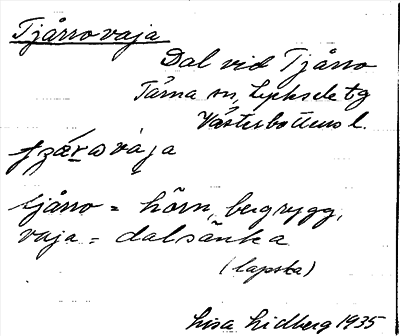 Tjårrovaja
Dal vid Tjårro
Tärna sn, Lycksele tg
Västerbottens l.
tjårro = hörn, bergrygg,
vaja = dalsänka
(lapska)
Lisa Lidberg 1935